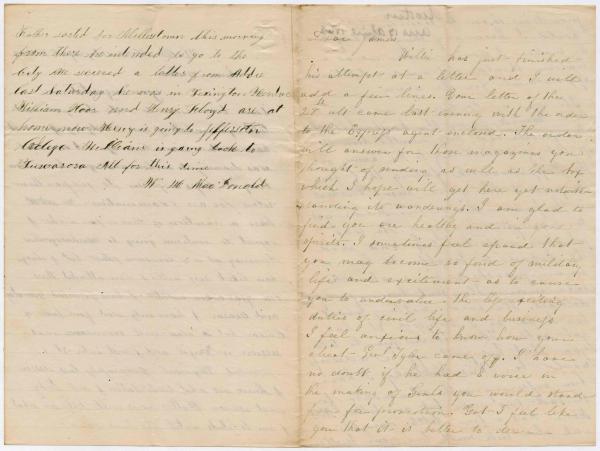 Father started for Millerstown this morning
from there he intended to go to the
City We received a letter from Addie
last Saturday he was in Lexington
William Hoos and Henry Floyd are at
home now Henry is going to
is going back to
Tuscarora All for this time
W. H. MacDonald
Dear James
Willie has just finished
his attempt at a letter and I will
add a few lines. Your letter of the
ult came last evening with the order
to the Express agent inclosed. The order
will answer for those magazines you
thought of sending as well as the box
which I hope will get here yet notwith
standing its wanderings. I am glad to
find you are healthy and in good
spirits. I sometimes feel afraid that
you may become so fond of military
life and excitement as to cause
you to undervalue the less exciting
duties of civil life and business
I feel anxious to know how your
client Genl Tyler came off. I have
no doubt if he had a voice in
the making of Genls you would stand
for promotion. But I feel like
you that it is better to